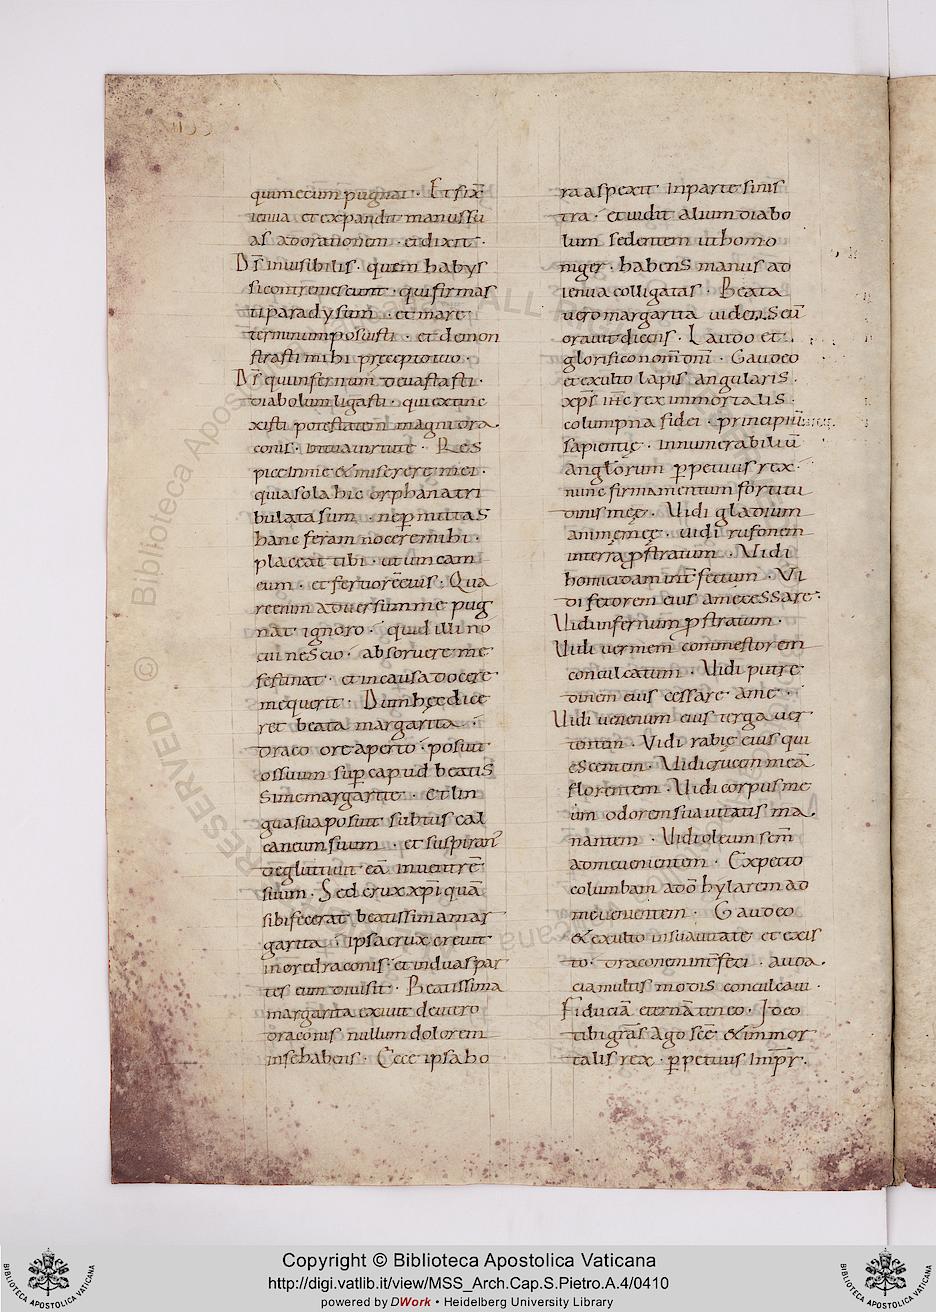 qui mecum pugnat · Et fix̅
ienua et expandit manus su
as ad orationem · et dixit ·
D̅s invisibilis · quem habys
si contremescunt · qui firmas
ti paradysum · et mare
terminum posuisti · et demon
strasti mihi precepto tuo ·
D̅s qui infernum devastasti ·
diabolum ligasti · qui extinc
xisti potestatem magni dra
conis · in tua virtute · Res
pice in me & miserere mei ·
quia sola hic orphana tri
bulata sum · ne p̲mittas
hanc feram nocere mihi ·
placeat tibi · ut vincam
eum · et
reenim adversum me pug
nat ignoro · quid illi no
cui nescio · absorvere me
festinat · et in causa docere
me querit · Dum hęc dice
ret beata margarita ·
draco ore aperto · posuit
os suum sup̲ capud beatis
sime margarite · Et lin
gua sua posuit subtus cal
caneum suum · et suspirans
deglutivit ea̅ in ventre̅
suum · Sed crux xp̅i qua̅
sibi fecerat beatissima mar
garita · ipsa crux crevit
in ore draconis · et in duas par
tes eum divisit · Beatissima
margarita exivit de utero
draconis nullum dolorem
in se habens · Ecce ipsa ho
ra aspexit in parte sinis
tra · et vidit alium diabo
lum sedentem ut homo
niger · habens manus ad
ienua colligatas · Beata
vero margarita videns eu̅
oravit dicens · Laudo et
glorifico nom̅ tuu̅ · Gaudeo
et exulto lapis angularis ·
xp̅s ih̅c rex immortalis ·
columpna fidei · principiu̅
sapientię · innumerabiliu̅
anglorum p̲petuus rex ·
nunc firmamentum fortitu
dinis meę · Vidi gladium
animę meę · vidi rufonem
in terra p̲stratum · Vidi
homicidam int̅fectum · Vi
di fetorem eius a me cessare ·
Vidi infernum p̲stratum ·
Vidi vermem commestorem
conculcatum · Vidi putre
dinem eius cessare a me ·
Vidi venenum eius terga ver
tentem · Vidi rabię eius qui
escentem · Vidi crucem mea̅
florentem · Vidi corpus me
um odorem suavitatis ma
nantem · Vidi oleum sc̅m
ad me venientem · Expecto
columbam a do̅ hylarem ad
me venientem · Gaudeo
& exulto in suavitate et exis
to · draconem int̅feci · auda
cia multis modis conculcavi ·
Fiducia̅ eterna̅ teneo · Ideo
tibi gra̅s ago sc̅e & immor
talis rex · p̲petuus imp̅r ·
Copyright © Biblioteca Apostolica Vaticana
http://digi.vatlib.it/view/MSS_Arch.Cap.S.Pietro.A.4/0410
powered by DWork • Heidelberg University Library